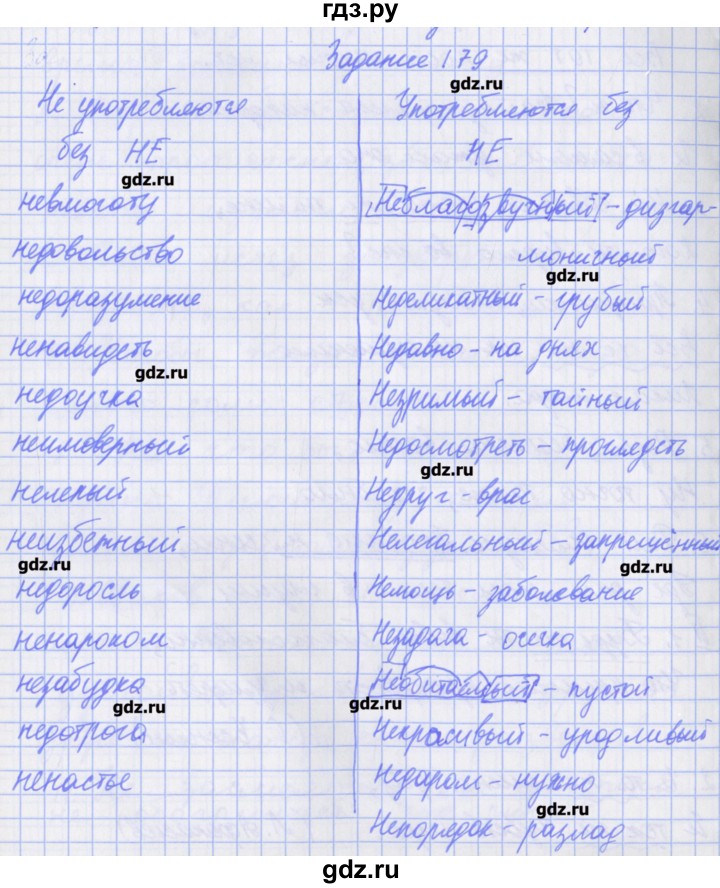 гдз.ру
Задание 179
gdz.ru
Не употребляются
без НЕ
gdz.ru
невмоготу
недовольство
недоразумение
ненавидеть
gdz.ru
недоучка
неимоверный
нелепый
неизбежный
gdz.ru
недоросль
ненароком
незабудка
gdz.ru
недотрога
ненастье
Употребляются без
НЕ
Неблагозвучный - дизгар-
моничный
gdz.ru
Неделикатный - грубый
Недавно - на днях
Незримый - тайный
Недосмотреть - проглядеть
gdz.ru
Недруг - враг
Нелегальный - запрещённый
gdz.ru
Немощь - заболевание
Незадача - осечка
Необитаемый - пустой
gdz.ru
Некрасивый - уродливый
Недаром - нужно
gdz.ru
Непорядок - разлад
gdz.ru